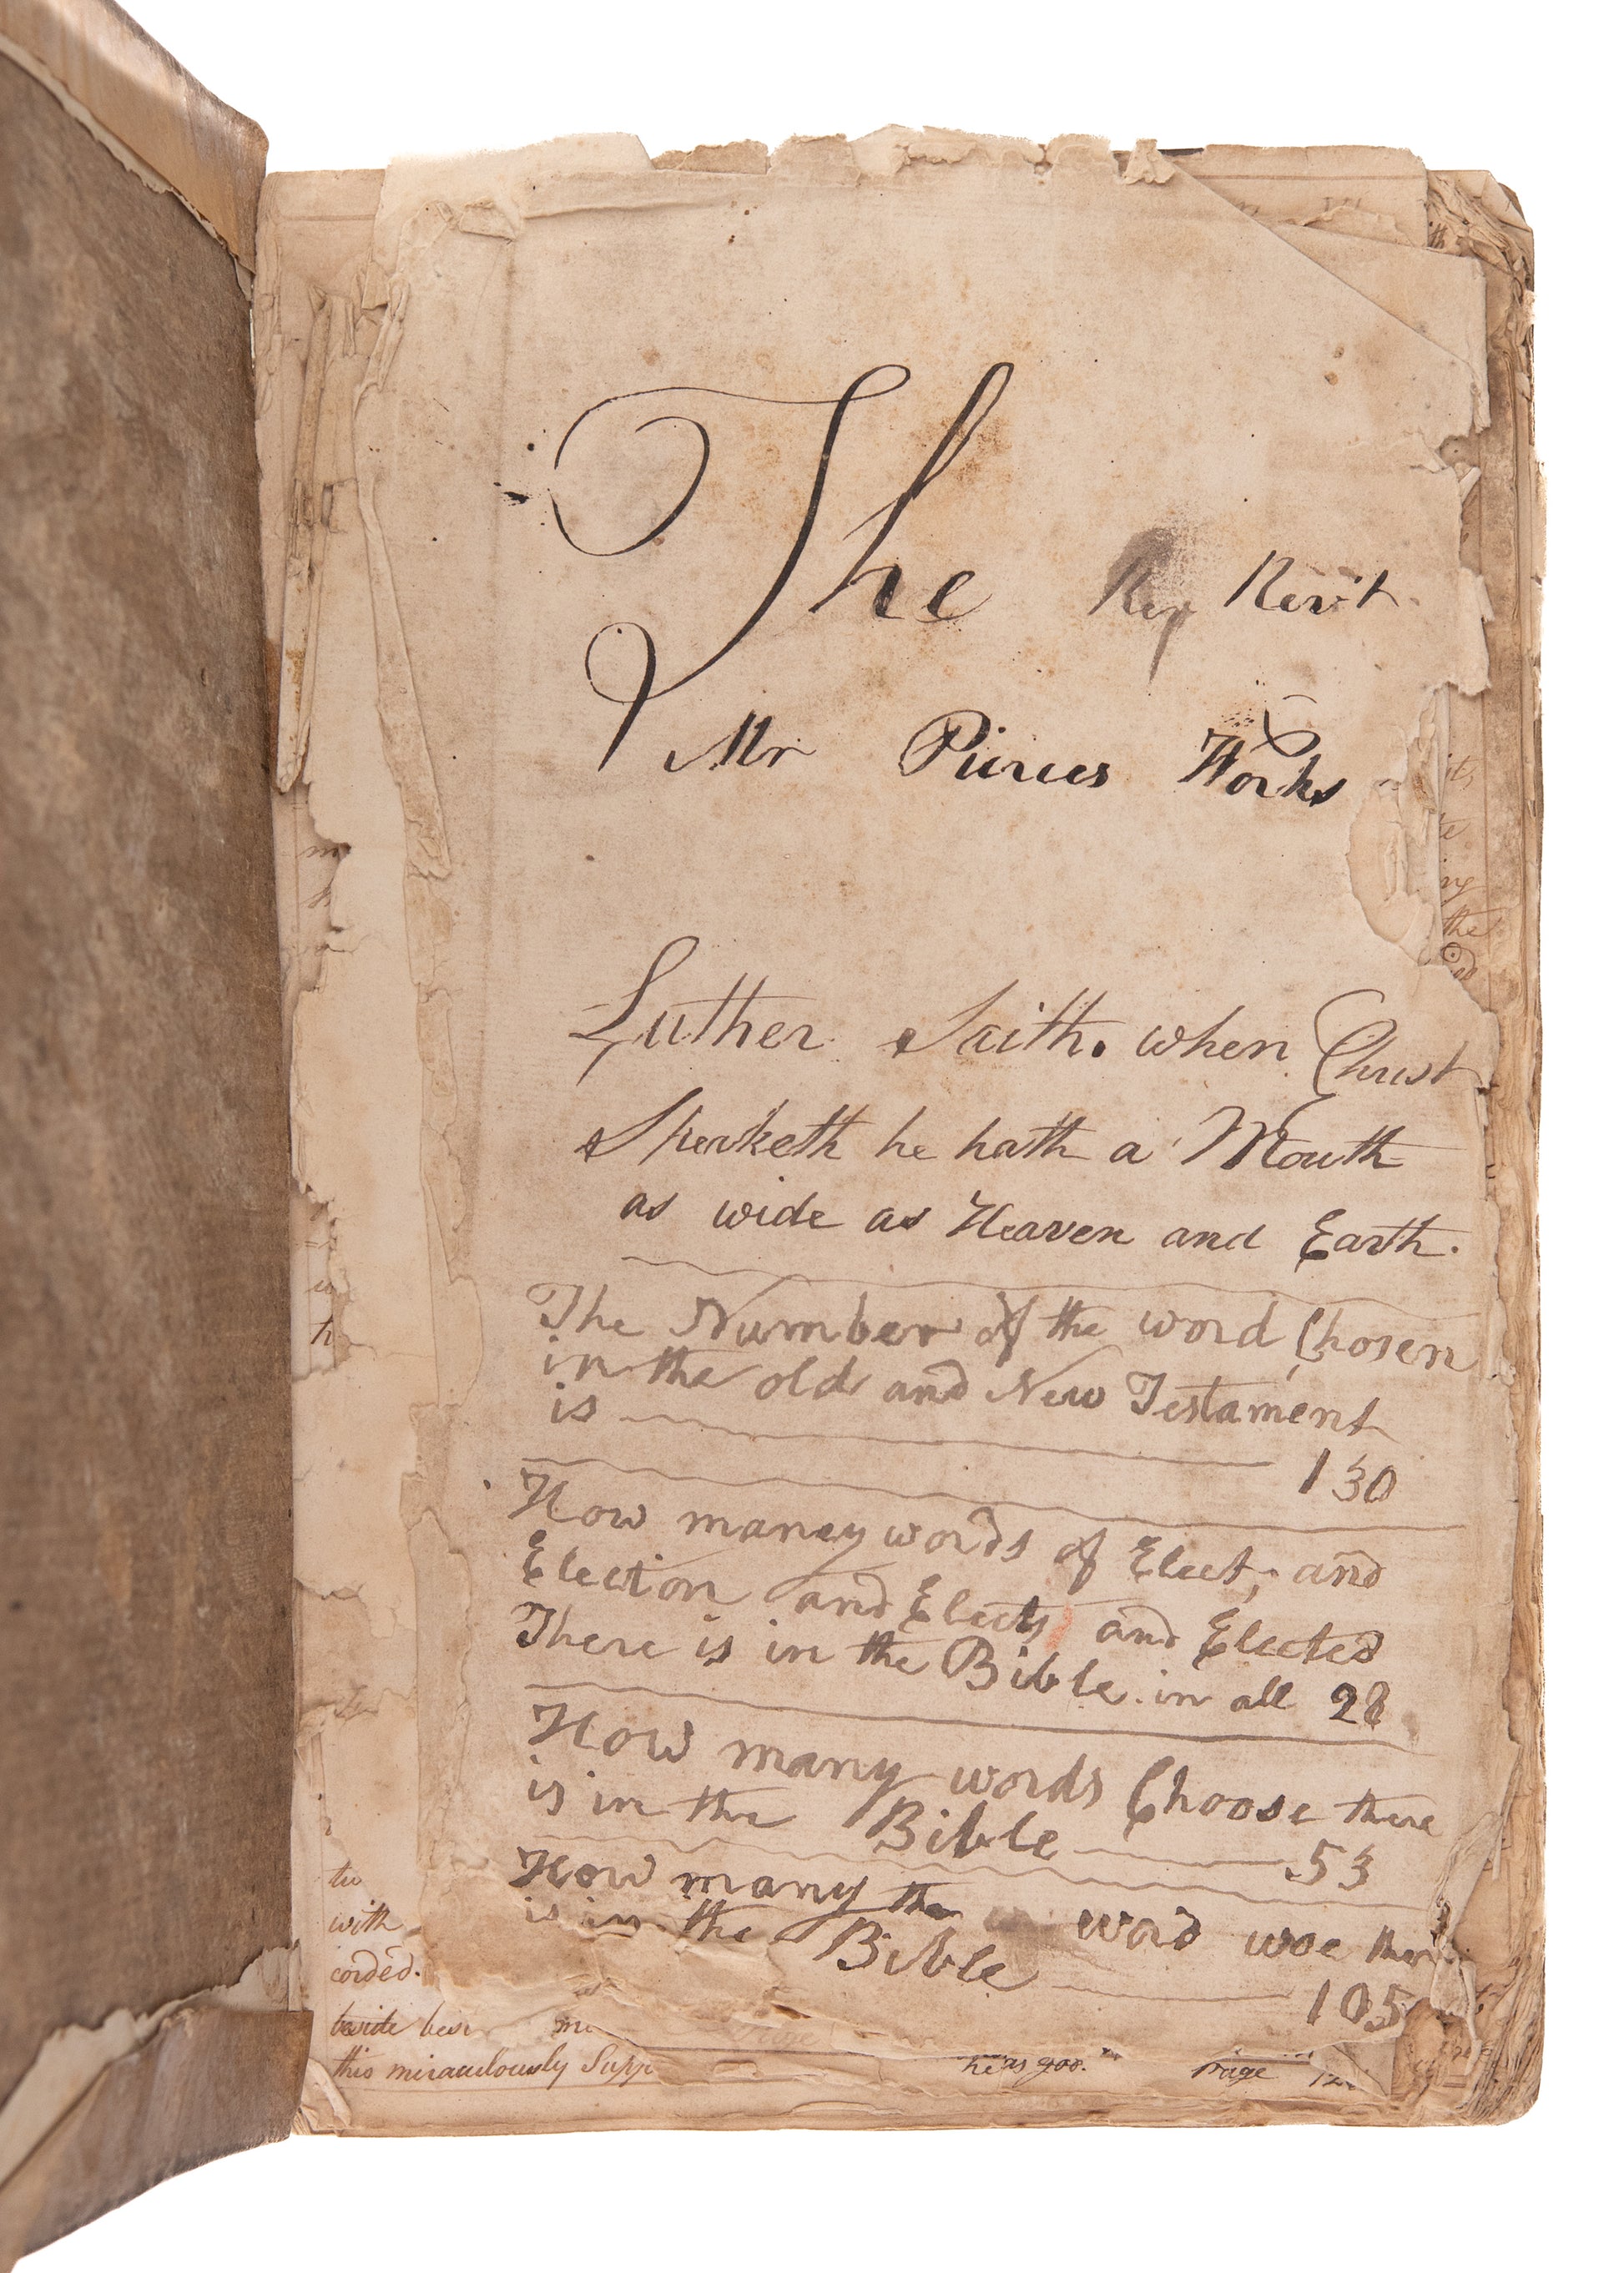 The Rev Rev't
Mr Pierces Works
Luther Saith. when Christ
Speaketh he hath a Mouth
as wide as Heaven and Earth.
The Number of the word Chosen
in the old and New Testament
is 130
How maney words of Elect, and
Election and Elects and Elected
There is in the Bible in all 28
How many words Choose there
is in the Bible 53
How many the word woe ther
is in the Bible 105
with
corded.
beside
this miraculously Supp
he as goo.
Page
the